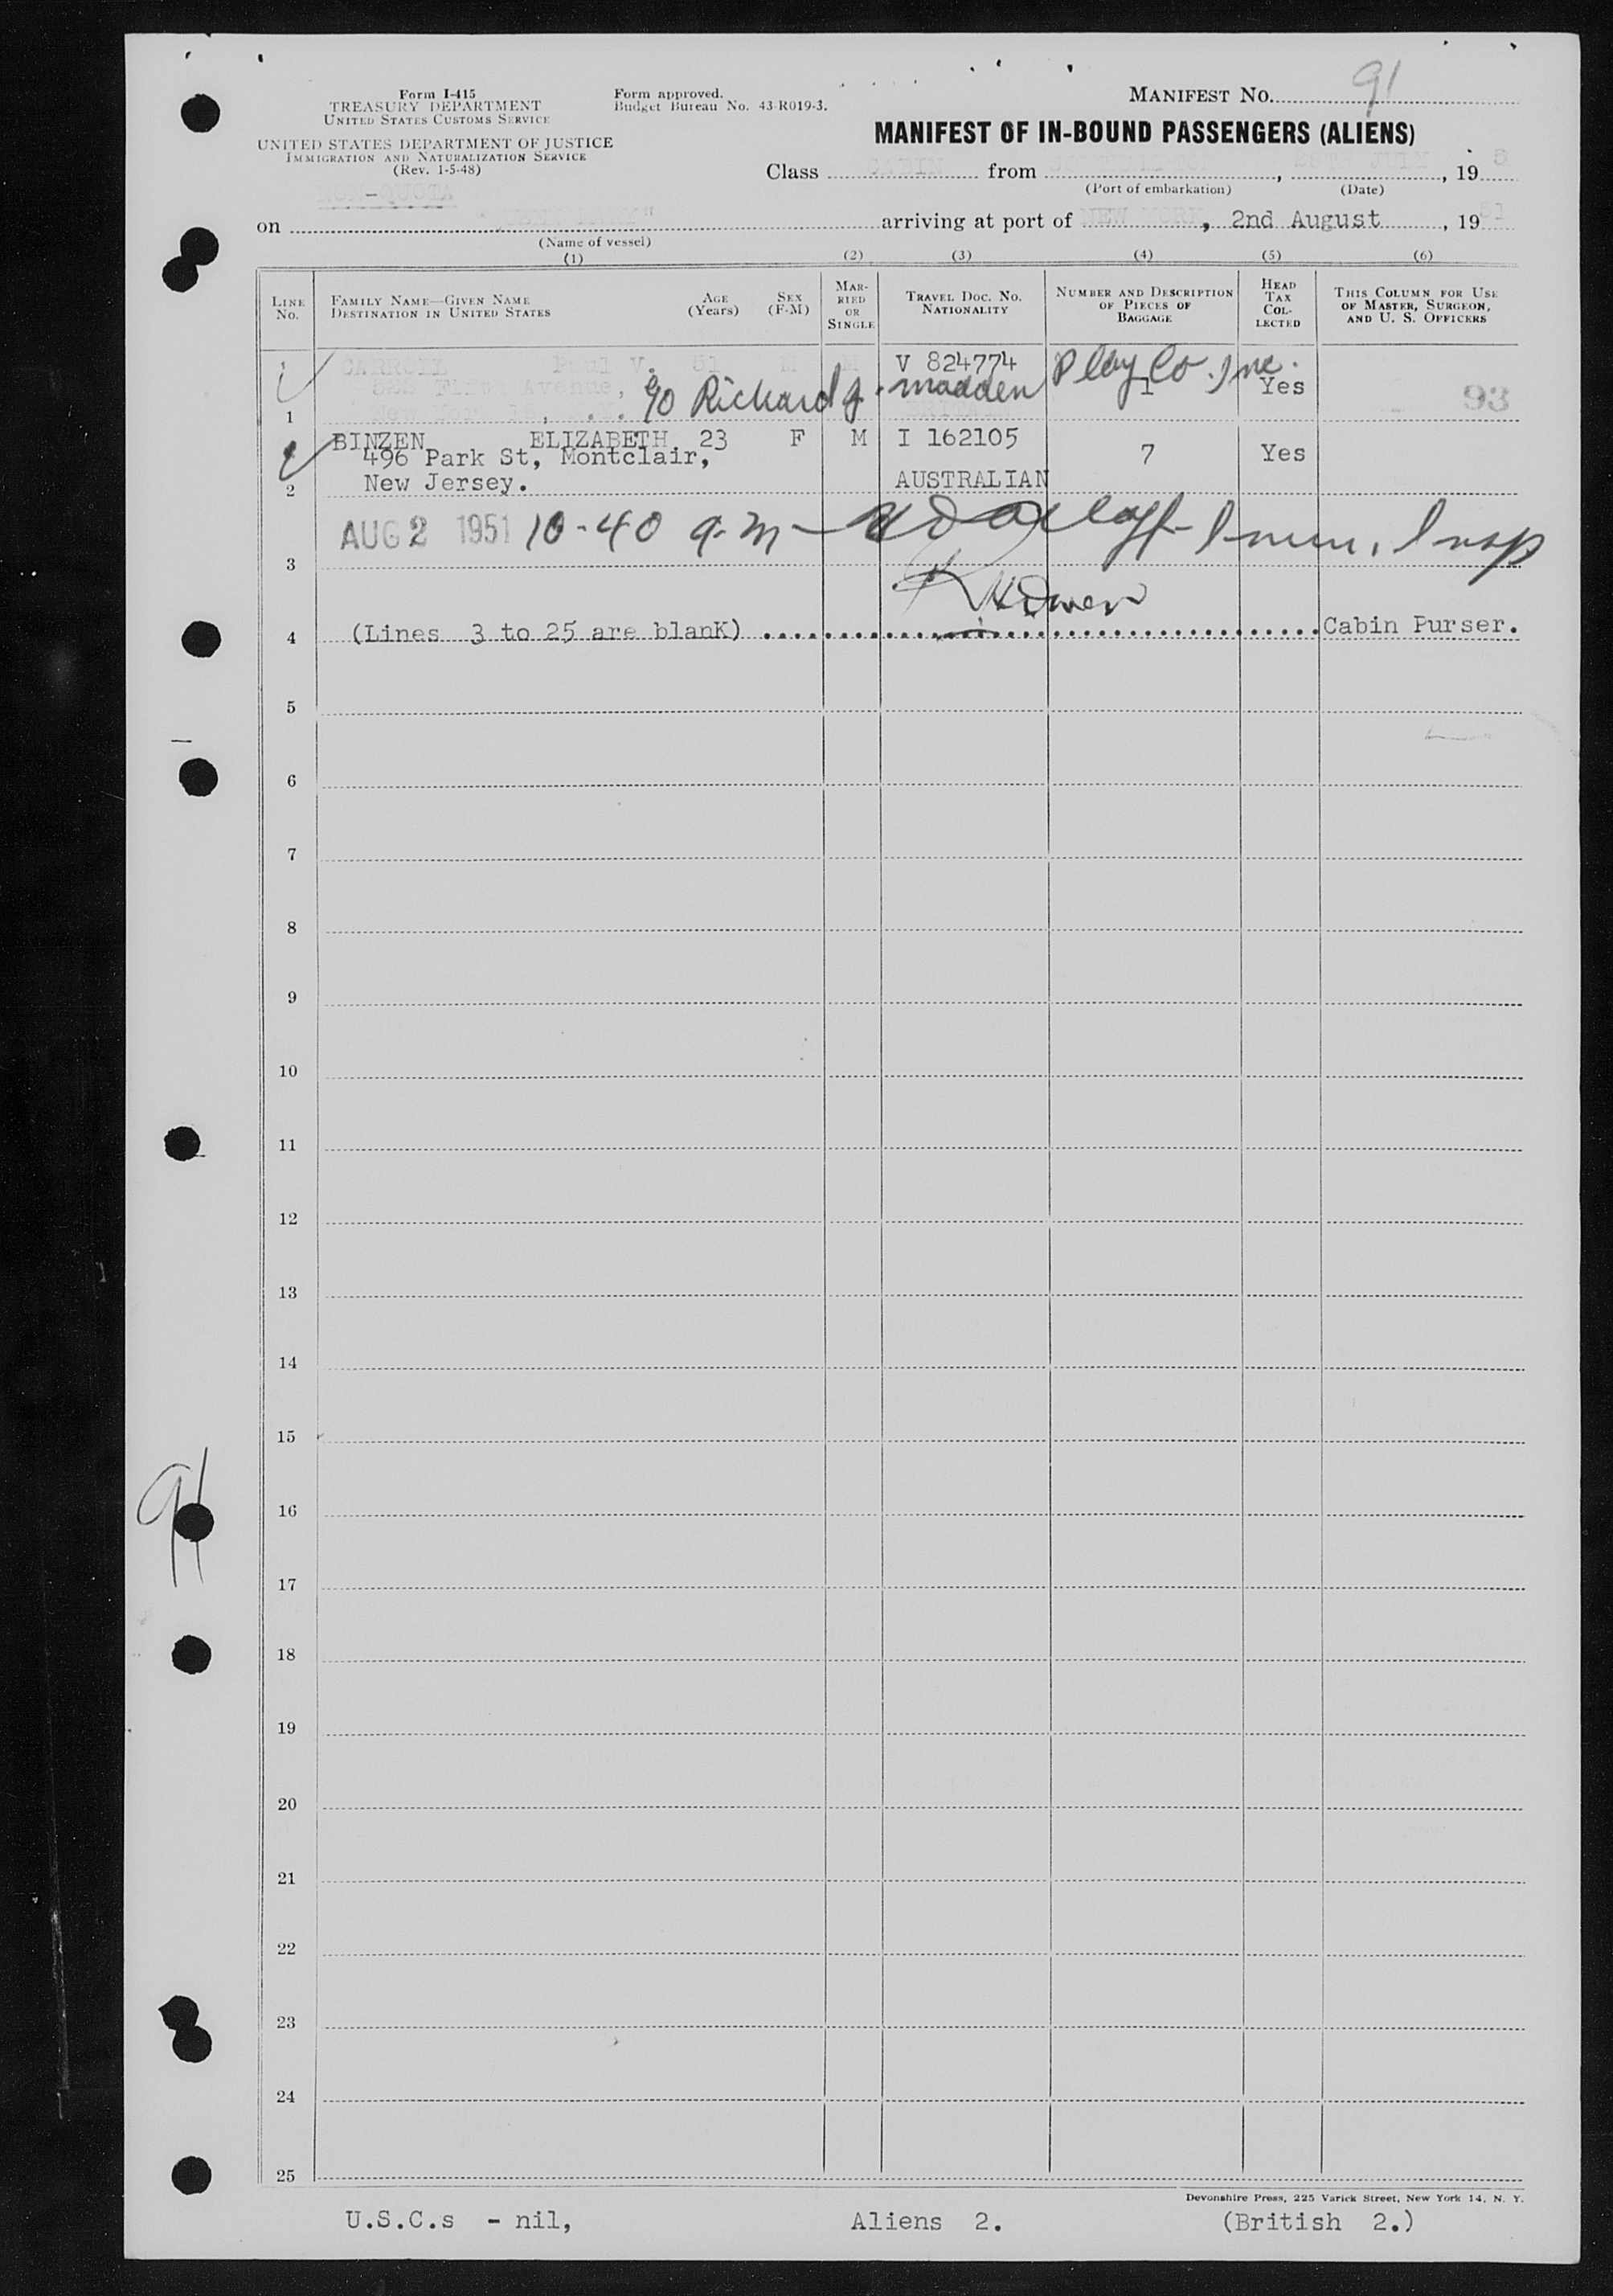 Form I-415
TREASURY DEPARTMENT
UNITED STATES CUSTOMS SERVICE
UNITED STATES DEPARTMENT OF JUSTICE
IMMIGRATION AND NATURALIZATION SERVICE
(Rev. 1-5-48)
Form approved.
Budget Bureau No. 43-R019-3.
MANIFEST NO. 91
MANIFEST OF IN-BOUND PASSENGERS (ALIENS)
Class CABIN from , , 19
(Port of embarkation) (Date)
on arriving at port of NEW YORK, 2nd August, 1951
(Name of vessel)
(1) (2) (3) (4) (5) (6)
LINE NO.
FAMILY NAME—GIVEN NAME
DESTINATION IN UNITED STATES
AGE (Years)
SEX (F-M)
MARRIED OR SINGLE
TRAVEL DOC. NO.
NATIONALITY
NUMBER AND DESCRIPTION OF PIECES OF BAGGAGE
HEAD TAX COLLECTED
THIS COLUMN FOR USE OF MASTER, SURGEON, AND U. S. OFFICERS
CARROLL Paul V. 51 M M V 824774 Play Co. Inc.
Fifth Avenue, c/o Richard J. Madden 1 Yes 93
1 New York
BINZEN ELIZABETH 23 F M I 162105
496 Park St, Montclair, 7 Yes
2 New Jersey. AUSTRALIAN
AUG 2 1951 10-40 a-m - Imm. Insp
3
4 (Lines 3 to 25 are blanK) Cabin Purser.
5
6
7
8
9
10
11
12
13
14
15
91
16
17
18
19
20
21
22
23
24
25
Devonshire Press, 225 Varick Street, New York 14, N. Y.
U.S.C.s - nil, Aliens 2. (British 2.)